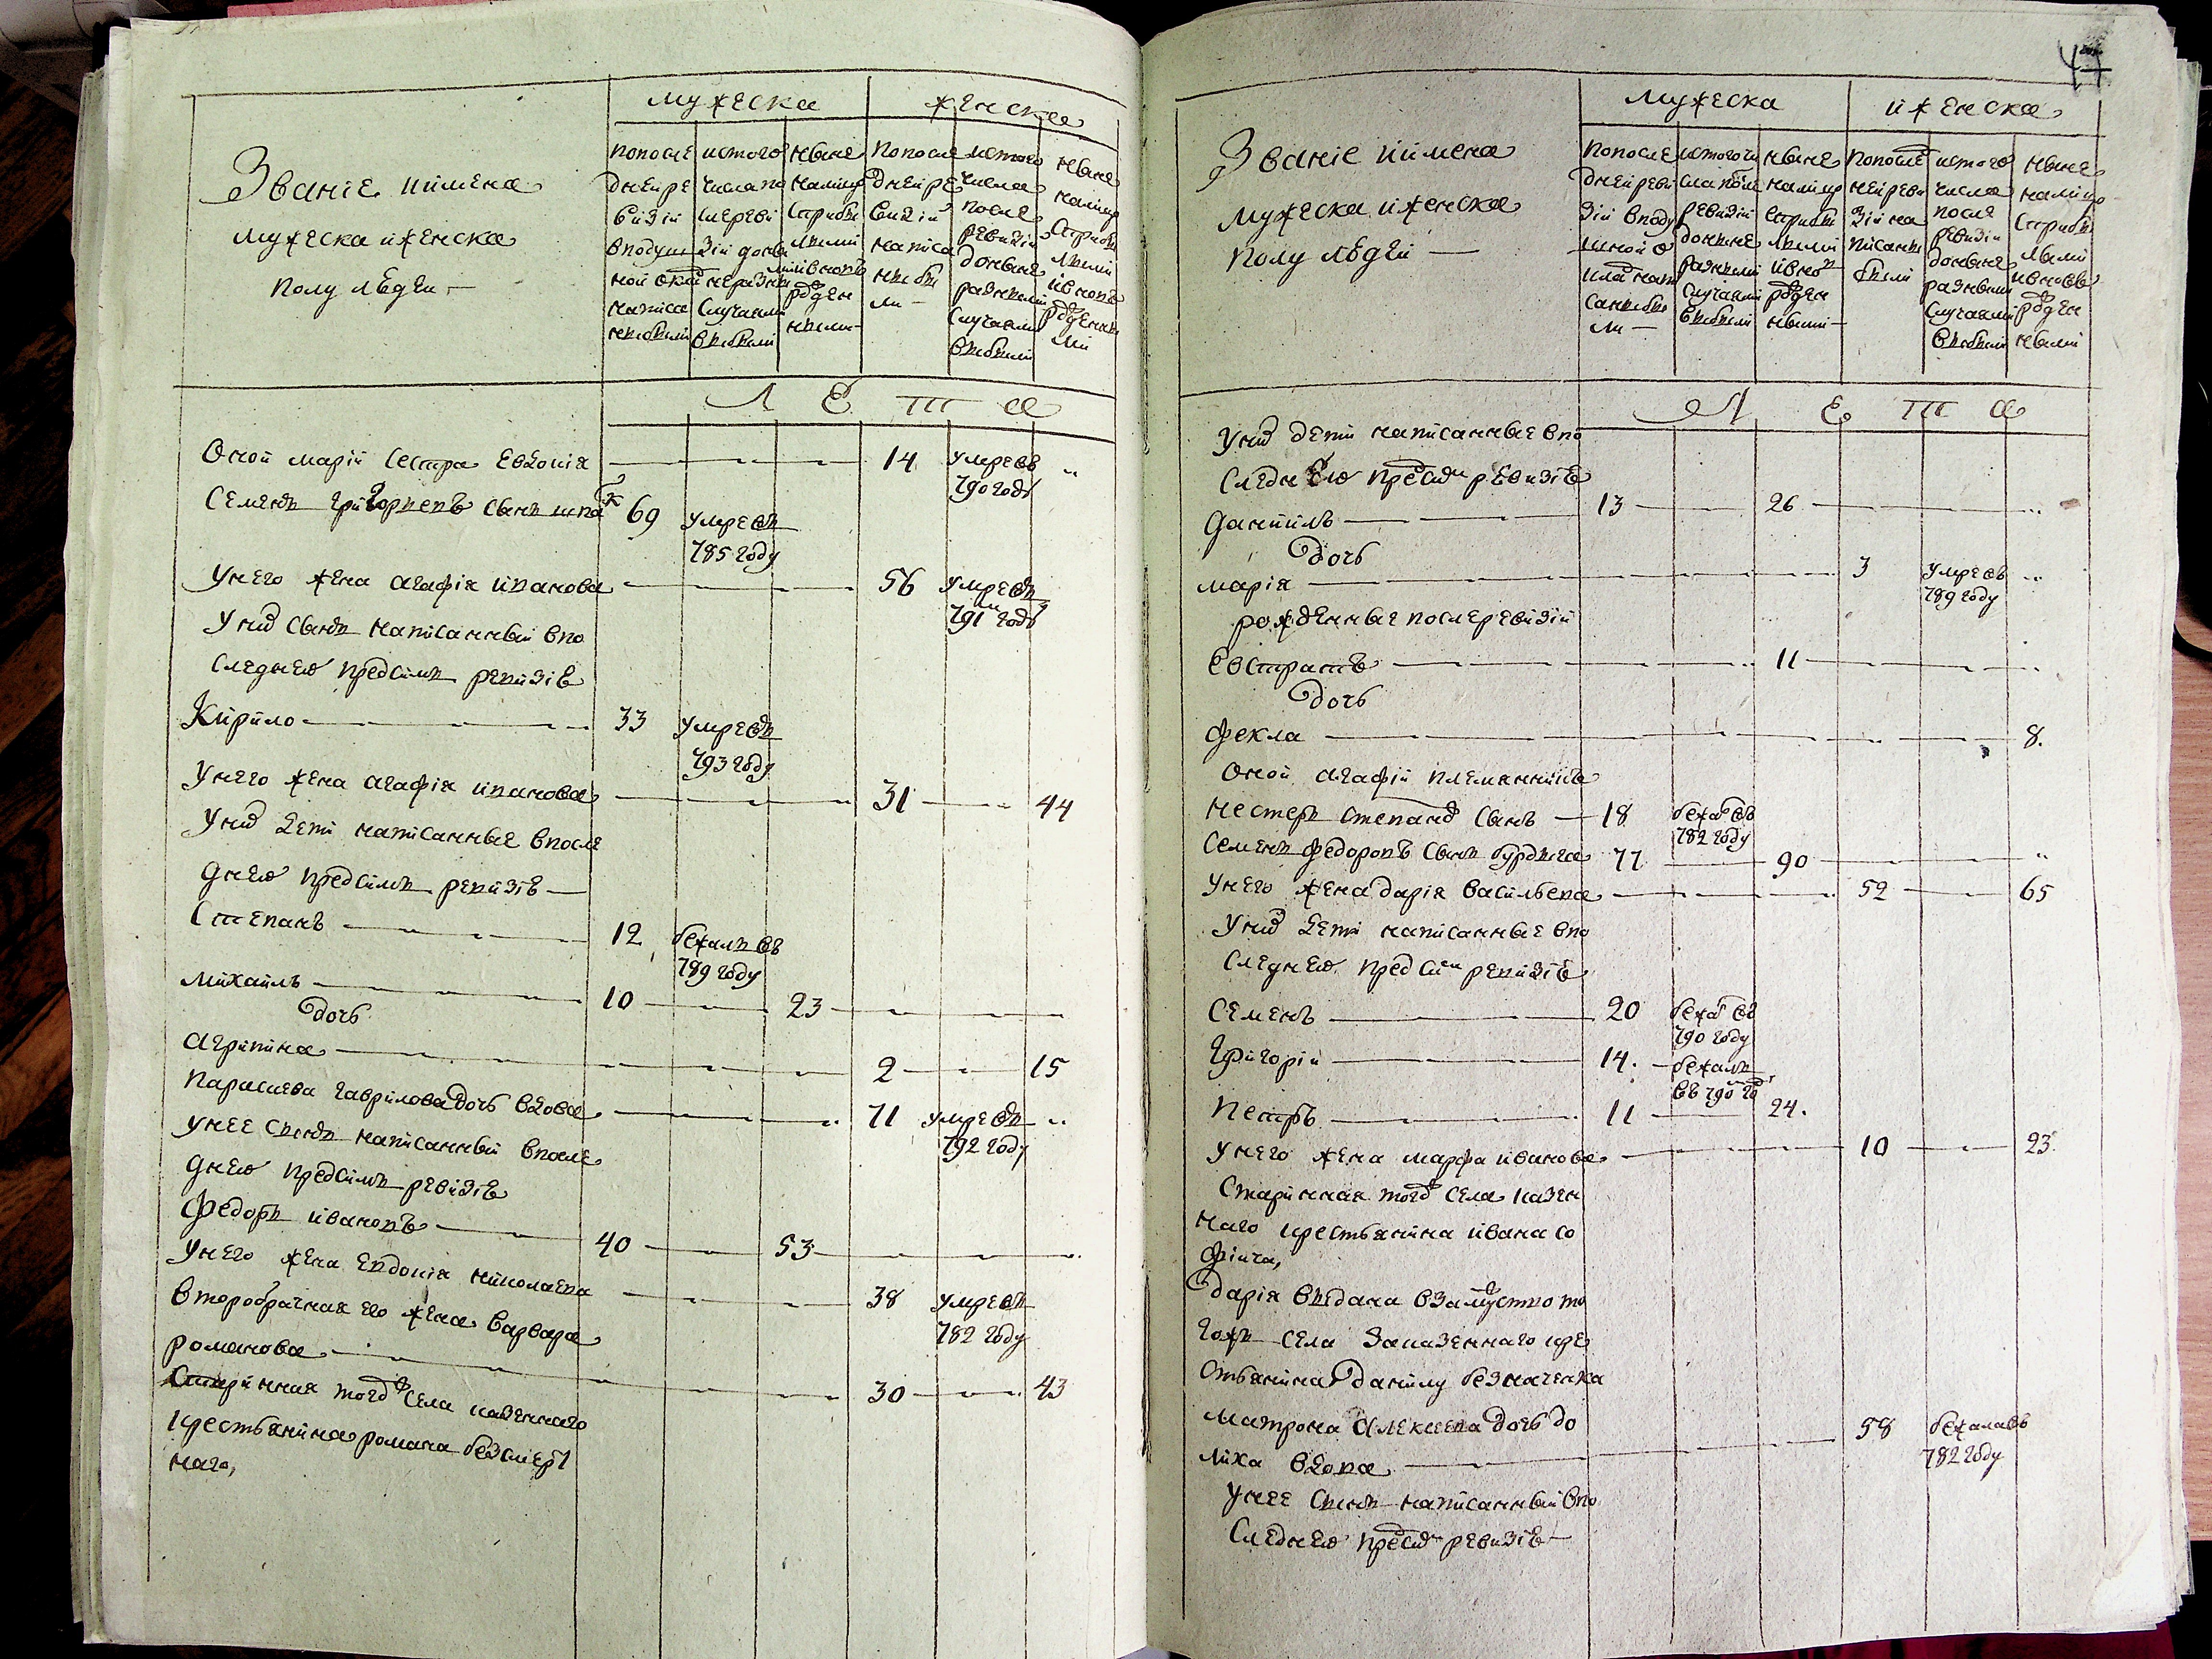 Званіе иимена
мужеска иженска
полу людеи
мужеска
женска
попосле
днеи ре
визіи
вподуш
ной окла
написа
ныбыли
истого
числа по
сле реви
зіи доны
неразны
случаями
выбыли
ныне
налицо
стриба
лыми
ивновь
рожден
ными
попосле
днеи ре
визіи
написа
ныбы
ли
истого
числа
после
ревизіи
доныне
разными
случаями
выбыли
ныне
налицо
стрибы
лыми
ивновь
рожденны
ми
Л Е Т А
Оной маріи сестра Евдокія 14 умре въ
790 году
Семенъ григорьевъ сынъ 69 умре въ
785 году
Унего жена агафія иванова 56 умре въ
791 году
Унихъ сынъ написанный впо
следнею предсимъ ревизіею
Кирило 33 умре въ
793 году
Унего жена агафія иванова 31 44
Унихъ дети написанные впосле
днею предсимъ ревизіею
Степанъ 12 бежалъ въ
789 году
михаилъ 10 23
дочь
агрипина 2 15
Парасиева гаврилова дочь вдова 71 умре въ
792 году
унее сынъ написанный впосле
днею предсимъ ревизіею
Федоръ ивановъ 40 53
унего жена Евдокія николаева 38 умре въ
782 году
второбрачная его жена варвара
романова 30 43
Старинная тогожъ села казеннаго
крестьянина романа безсмерт
наго,
47
Званіе иимена
мужеска иженска
полу людеи
мужеска
иженска
попосле
днеи реви
зіи вподу
шной о
кладъ напи
саныбы
ли
истого чи
сла после
ревизіи
доныне
разными
случаями
выбыли
ныне
налицо
стрибы
лыми
ивно
рожден
ными
попосле
днеи реви
зіи на
писаны
были
истого
числа
после
ревизіи
доныне
разными
случаями
выбыли
ныне
налицо
стрибы
лыми
ивновь
рожден
ными
Л Е Т А
Унихъ дети написанные впо
следнею предсимъ ревизіею
даниилъ 13 26
дочь
марія 3 умре въ
789 году
рожденные послеревизіи
Евстратъ 11
дочь
фекла 8.
Оной агафіи племянникъ
нестеръ степановъ сынъ 18 бежалъ въ
782 году
Семенъ федоровъ сынъ бурдыга 77 90
унего жена дарія васильева 52 65
унихъ дети написанные впо
следнею предсимъ ревизіею
Семенъ 20 бежалъ въ
790 году
Григоріи 14. бежалъ
въ 790 году
Петръ 11 24.
унего жена марфа иванова 10 23.
Старинная тогожъ села казен
наго крестьянина ивана со
фіича,
дарія выдана взамужство то
гожъ села заказеннаго кре
стьянина данилу безначенка
матрона алексиева дочь до
лиха вдова 58 бежала въ
782 году
унее сынъ написанный впо
следнею предсимъ ревизіею